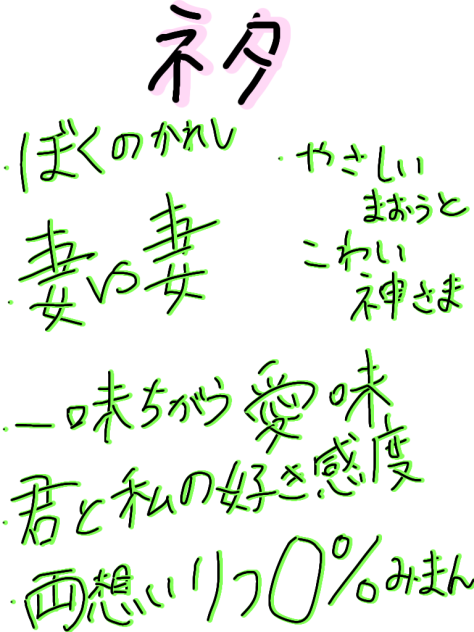 ネタ
・ぼくのかれし
・妻vs妻
・やさしい
まおうと
こわい
神さま
・一味ちがう愛味
・君と私の好き感度
・両想いりつ0%みまん